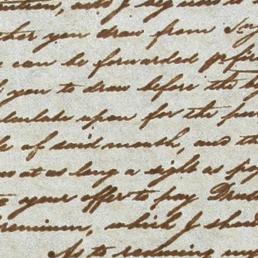 ther you draw from
can be forwarded
you to draw before the
calculate upon for the
of said month, and the
at as long a sight as
your offer to pay
premium, which I
As to renewing my